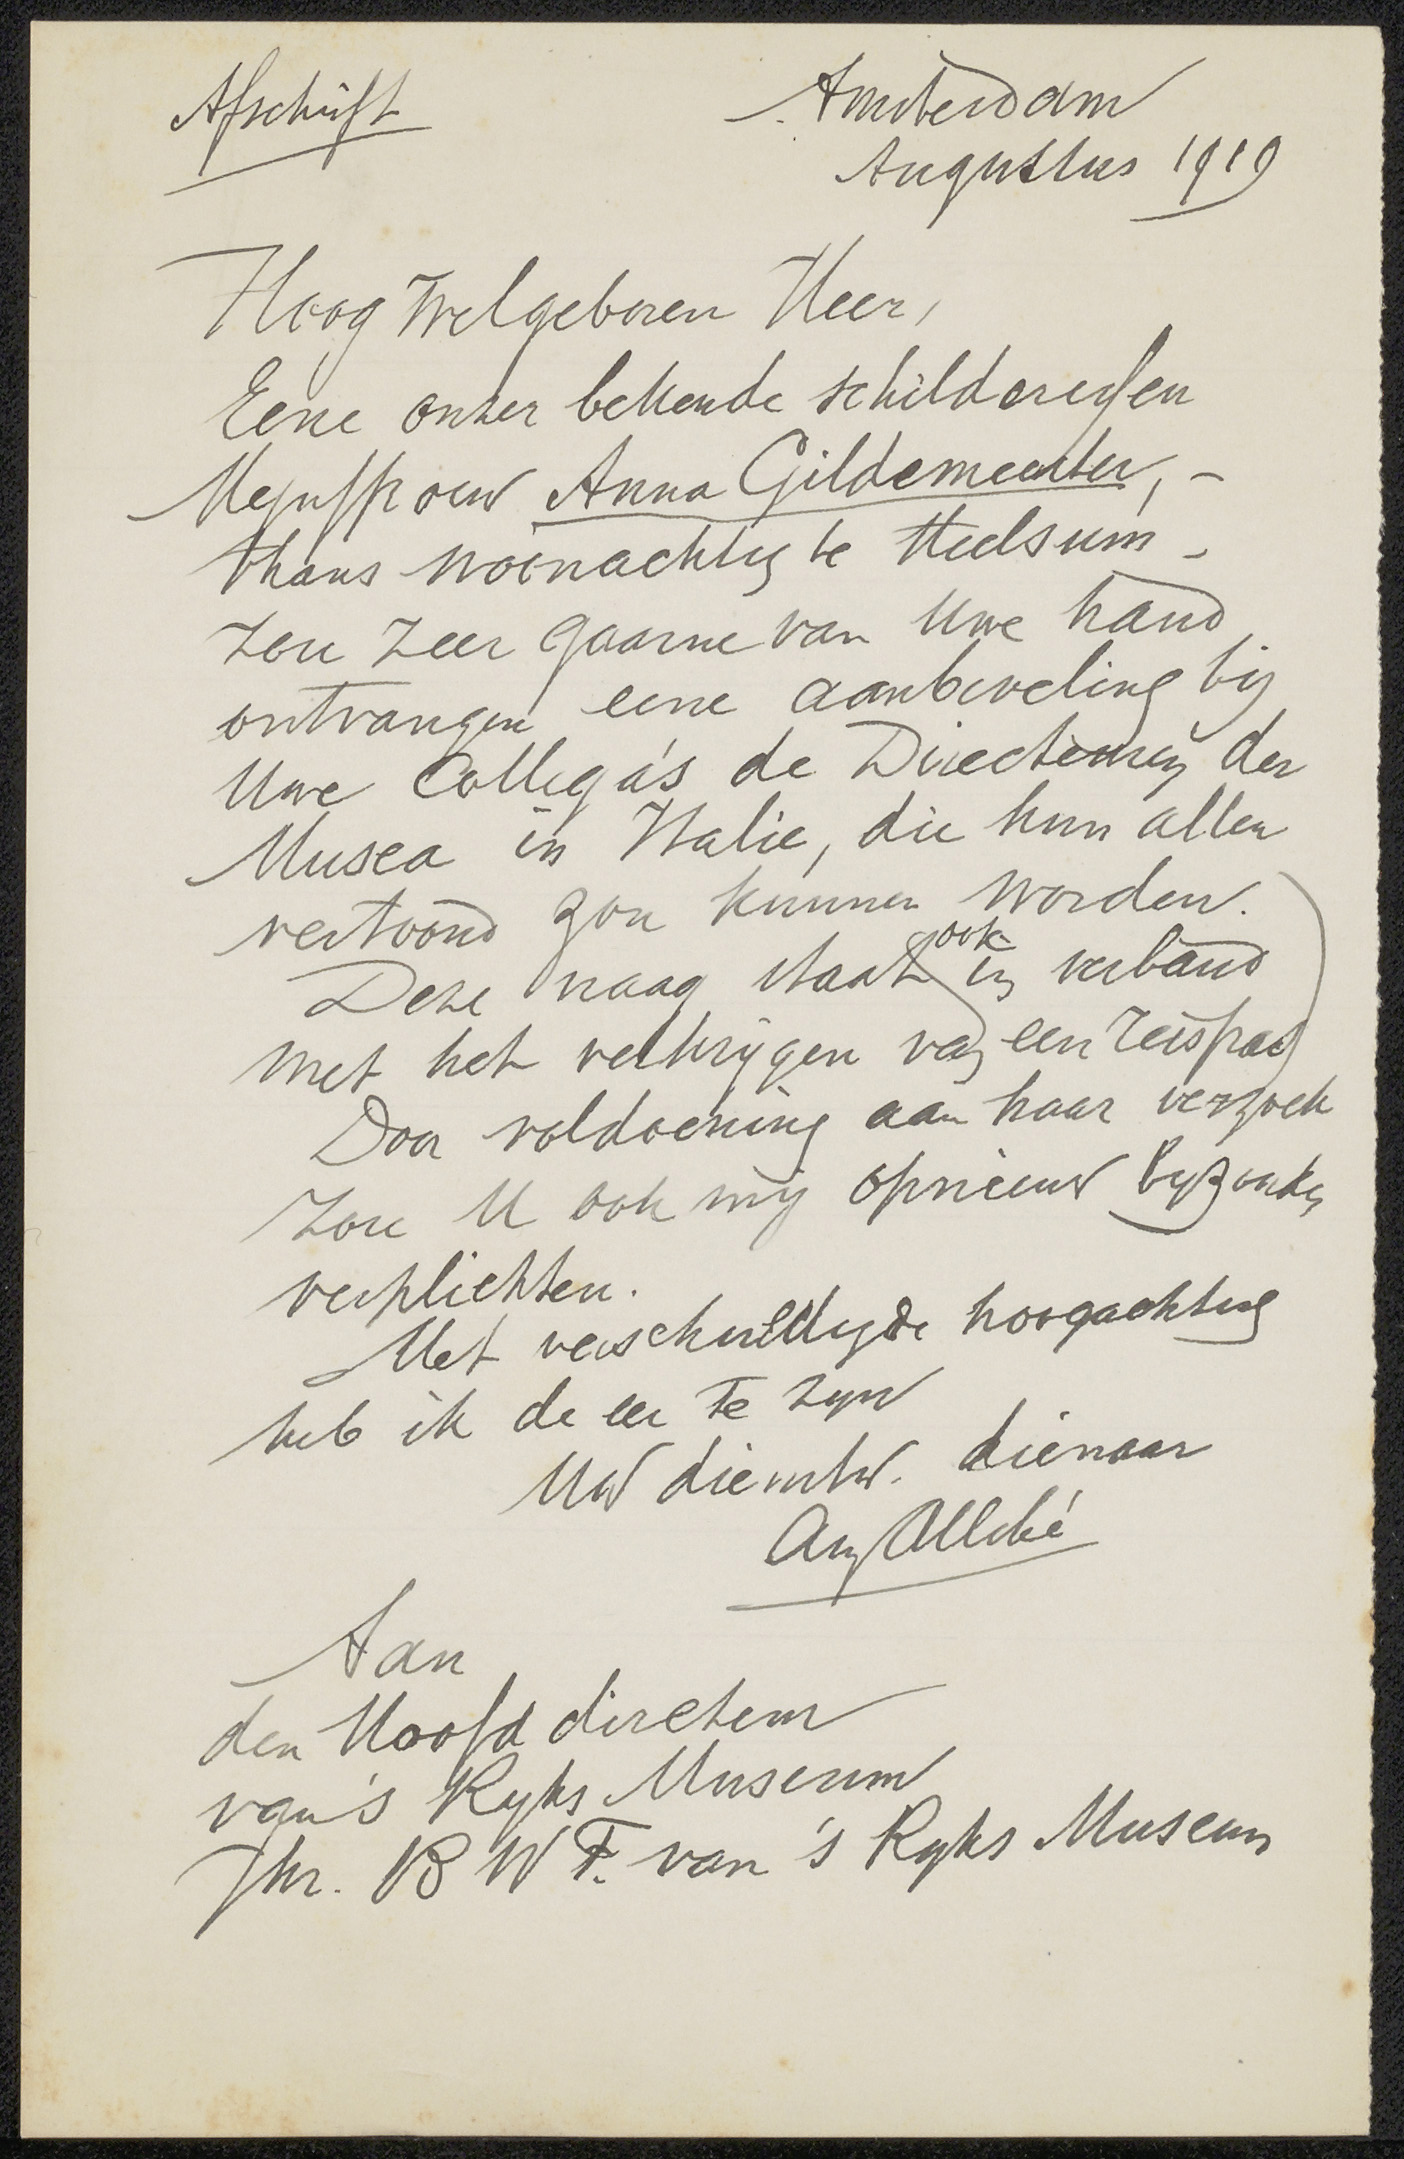 Afschrift
Amsterdam
Augustus 1919
Hoog Welgeboren Heer,
Eene onzer bekende schilderessen
Mejuffrouw Anna Gildemeester, -
thans woonachtig te Heelsum -
zou zeer gaarne van Uwe hand
ontvangen eene aanbeveling bij
Uwe Collega's de Directeuren der
Musea in Italie, die hun allen
vertoond zou kunnen worden.
Deze vraag staat ook in verband
met het verkrijgen van een reispas)
Door voldoening aan haar verzoek
zou U ook mij opnieuw byzonder
verplichten.
Met verschuldigde hoogachting
heb ik de eer te zyn
Uw dienstw. dienaar
Aug Allebé
Aan
den Hoofd directeur
van 's Ryks Museum
Jhr. B W F. van 's Ryks Museum